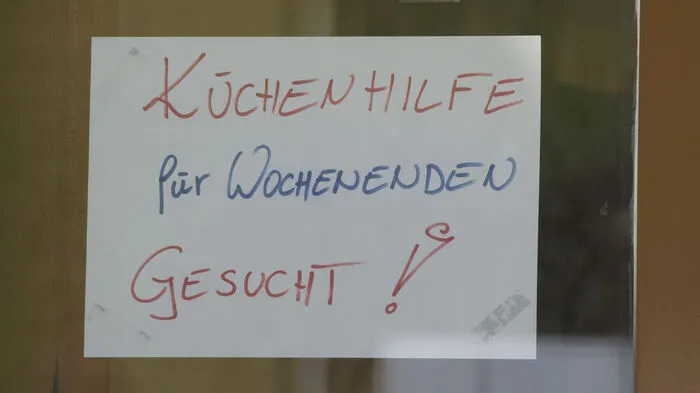 KÜCHENHILFE
für WOCHENENDEN
GESUCHT !